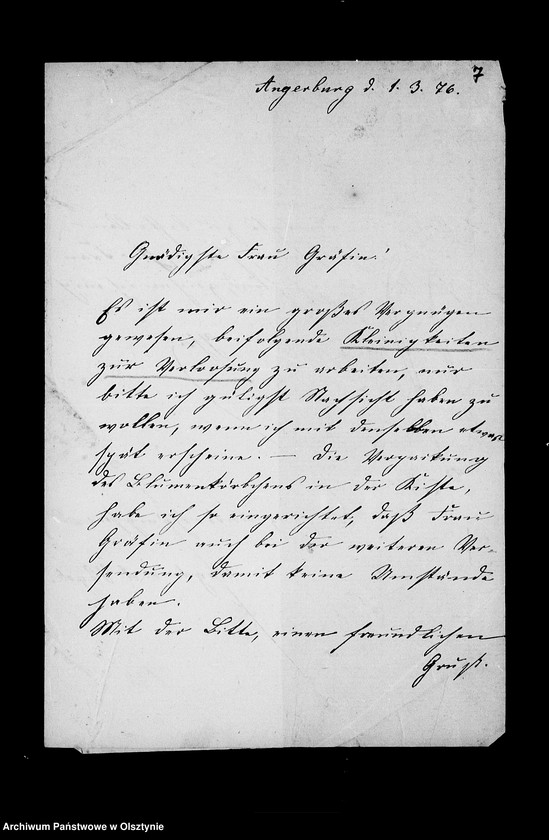 7
Angerburg d. 1. 3. 76.
Gnädigste Frau Gräfin!
Es ist mir ein großes Vergnügen
gewesen, beifolgende Kleinigkeiten
zur Verloosung zu arbeiten, nur
bitte ich gütigst Nachsicht haben zu
wollen, wenn ich mit denselben etwas
spät erscheine. — Die Verpackung
des Blumenkörbchens in der Kiste,
habe ich so eingerichtet, daß Frau
Gräfin auch bei der weiteren Ver-
sendung, damit keine Umstände
haben.
Mit der Bitte, einen freundlichen
Gruß.
Archiwum Państwowe w Olsztynie